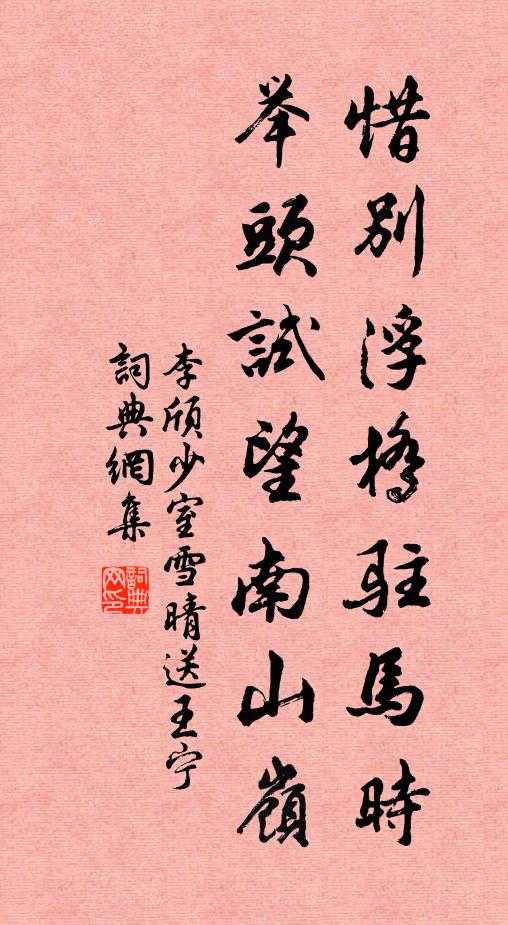 惜別浮橋駐馬時
举頭試望南山嶺
李頎少室雪晴送王宁
詞典網集
詞典网印